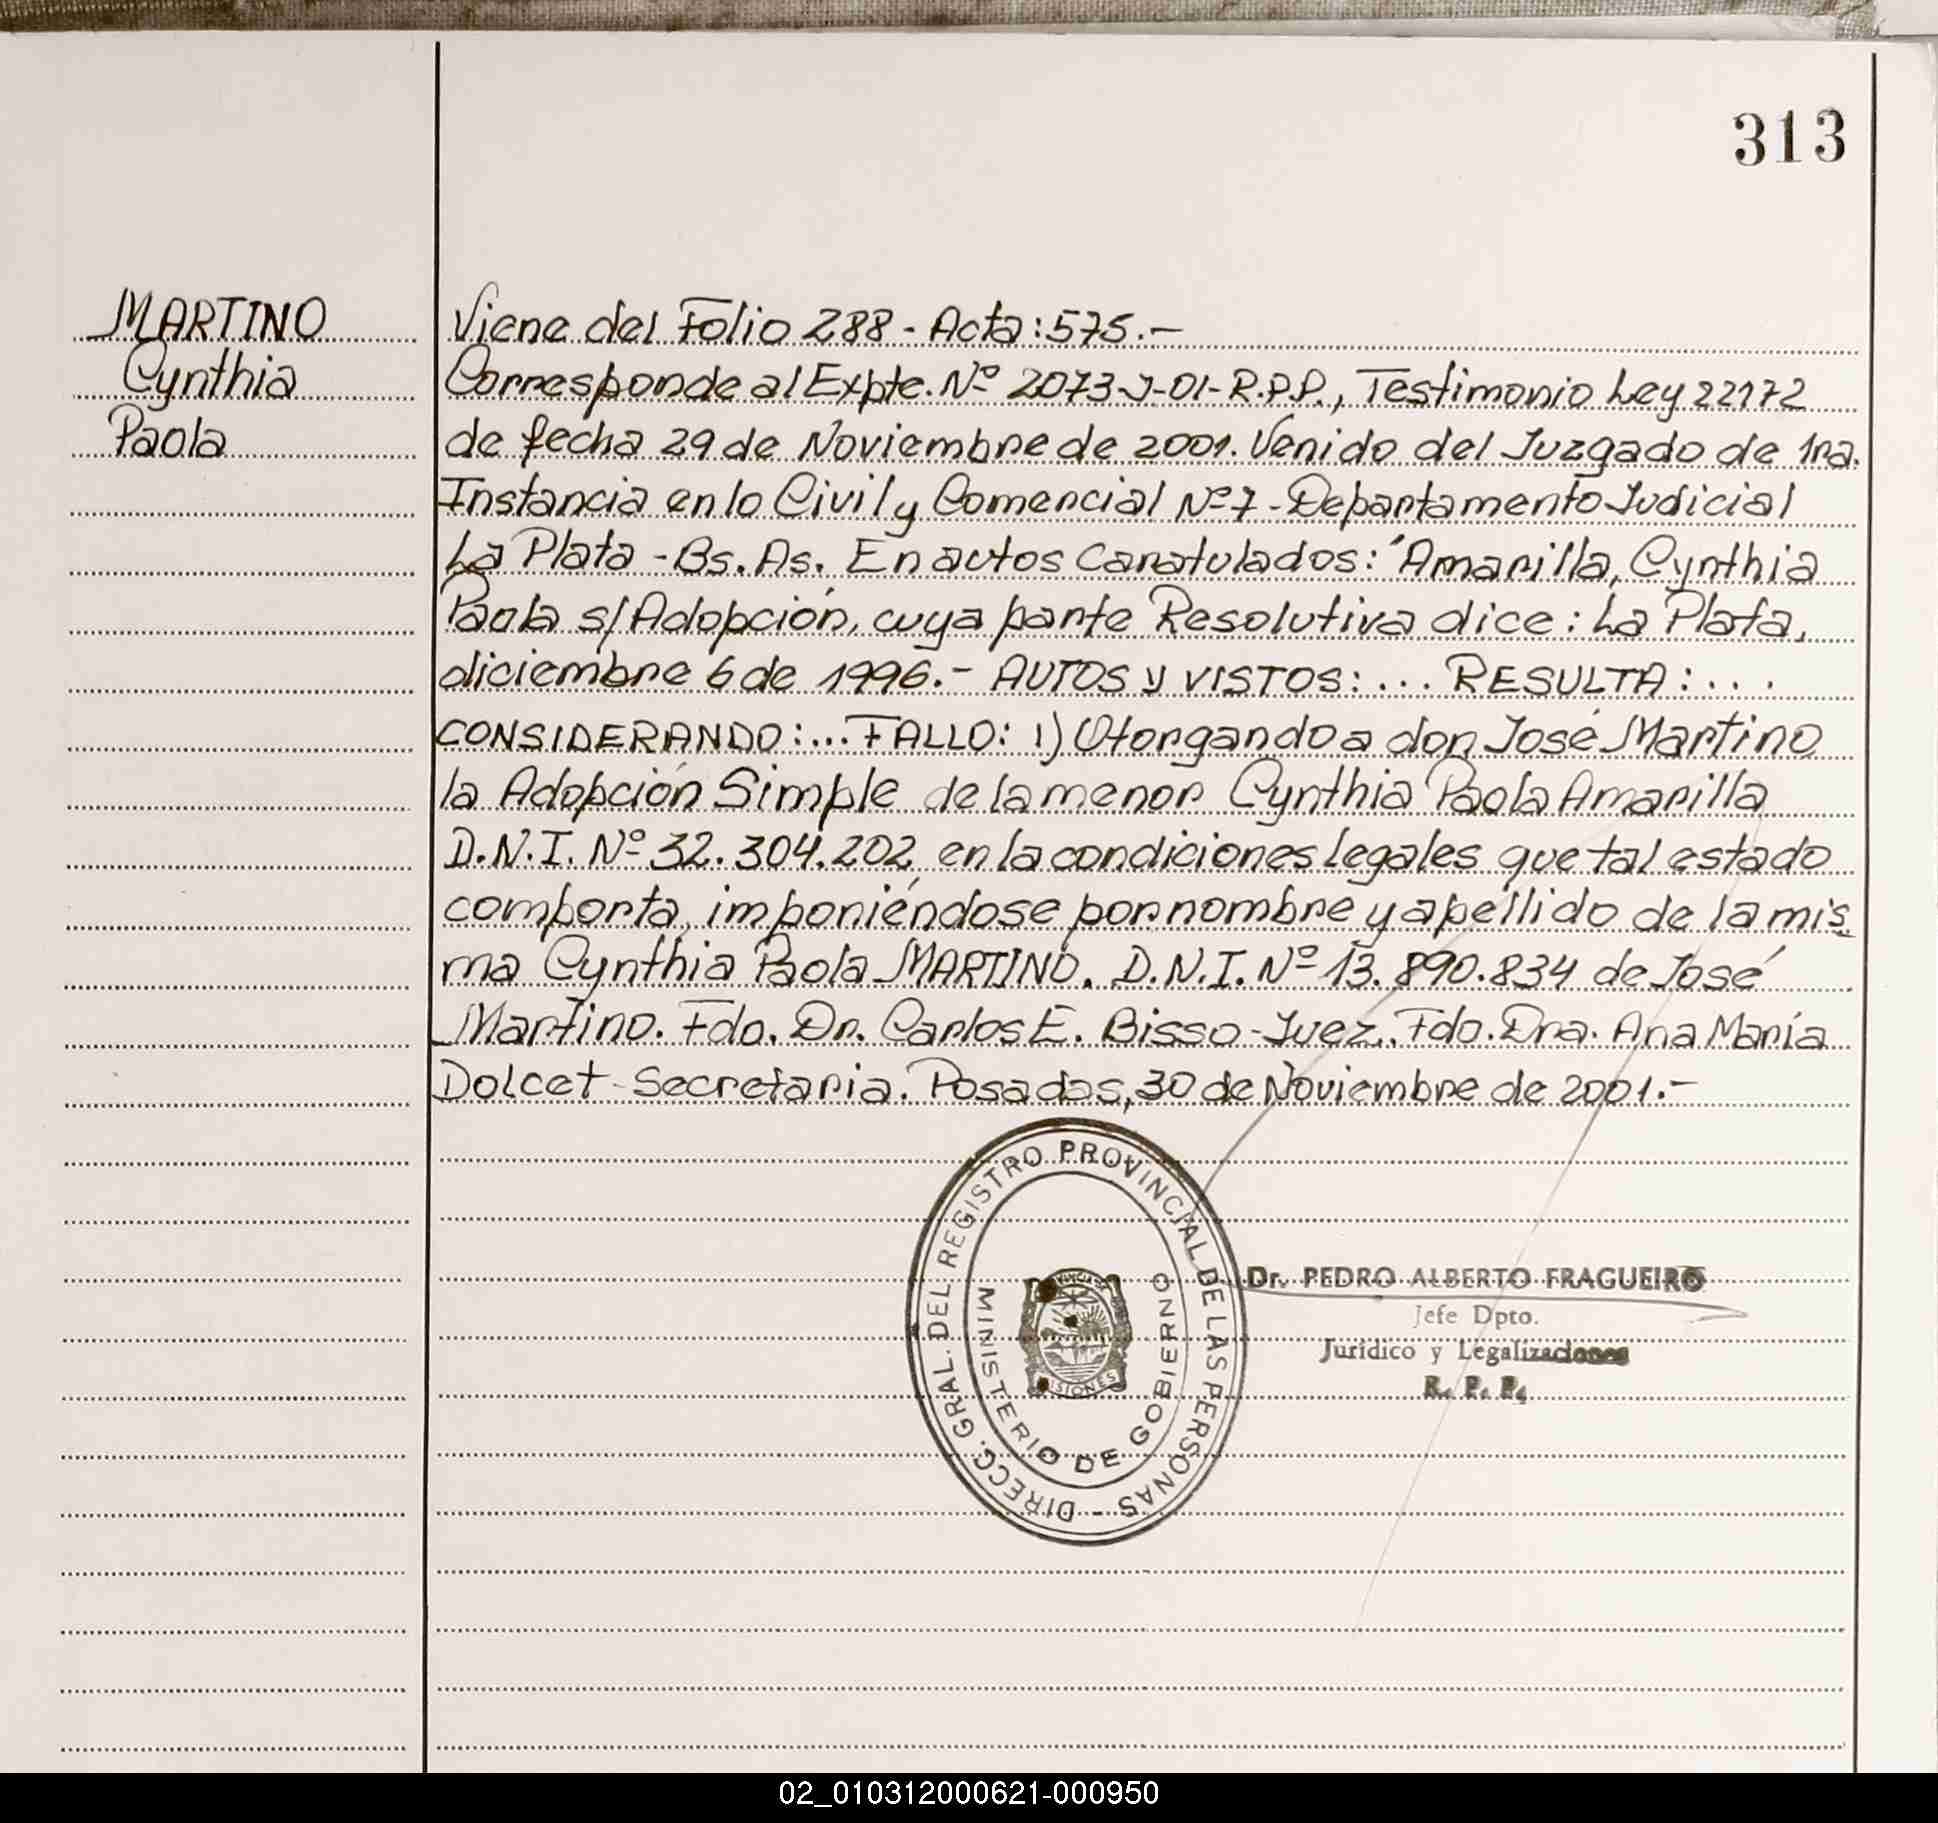 313
MARTINO
Cynthia
Paola
Viene del Folio 288 - Acta: 575.-
Corresponde al Expte. Nº 2073-J-01-R.P.P., Testimonio Ley 22172
de fecha 29 de Noviembre de 2001. Venido del Juzgado de 1ra.
Instancia en lo Civil y Comercial Nº 7 - Departamento Judicial
La Plata - Bs. As. En autos Caratulados: "Amarilla, Cynthia
Paola s/ Adopción, cuya parte Resolutiva dice: La Plata,
diciembre 6 de 1996.- AUTOS y VISTOS: ... RESULTA: ...
CONSIDERANDO: ... FALLO: 1) Otorgando a don José Martino
la Adopción Simple de la menor Cynthia Paola Amarilla
D.N.I. Nº 32.304.202 en la condiciones legales que tal estado
comporta, imponiéndose por nombre y apellido de la mis
ma Cynthia Paola MARTINO. D.N.I. Nº 13.890.834 de José
Martino. Fdo. Dr. Carlos E. Bisso - Juez. Fdo. Dra. Ana María
Dolcet - Secretaria. Posadas, 30 de Noviembre de 2001.-
DIRECC. GRAL. DEL REGISTRO PROVINCIAL DE LAS PERSONAS -
MINISTERIO DE GOBIERNO
Dr. PEDRO ALBERTO FRAGUEIRO
Jefe Dpto.
Jurídico y Legalizaciones
R. P. P.
02_010312000621-000950